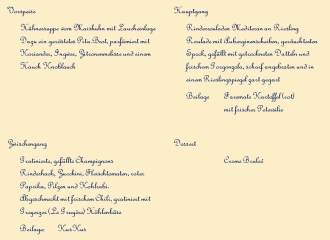 Vorspeise
Hühnersuppe vom Maishuhn mit Laucheinlage
Dazu ein geröstetes Pita-Brot, parfümiert mit
Koriander, Ingwer, Zitronenmelisse und einem
Hauch Knoblauch
Hauptgang
Rinderrouladen Mediteran an Riesling
Roulade mit Auberginenscheiben, geräuchertem
Speck, gefüllt mit getrockneten Datteln und
frischem Gorgonzola, scharf angebraten und in
einem Rieslingspiegel gart gegart
Beilage Kartoffel (rot)
mit frischer Petersilie
Zwischengang
Gratinierte, gefüllte Champignons
Rinderhack, Zucchini, Fleischtomaten, roter
Paprika, Pilzen und Kohlrabi.
Abgeschmeckt mit frischem Chili, gratiniert mit
Greyerzer (Le Gruyère) Höhlenkäse
Beilage: KusKus
Dessert
Creme Bruleé